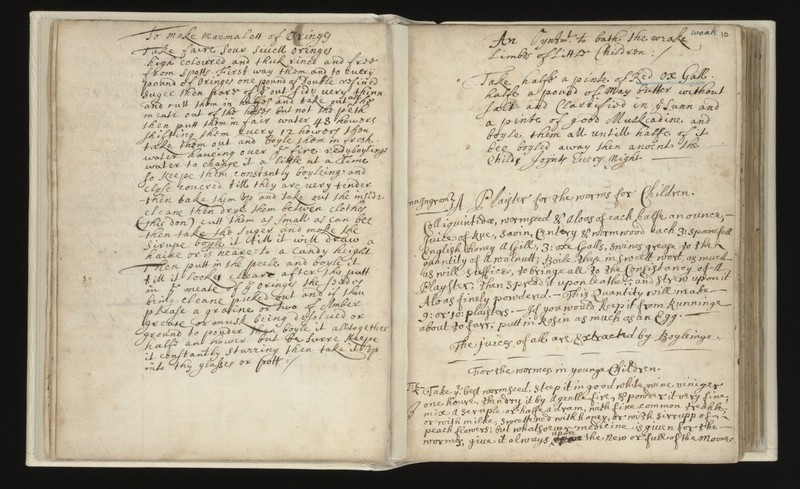 To make Marmalett of Oringes
Take faire Sour Sivell Oringes
high coloured and thick rined and free
from Spotts. First way them and to every
pound of Oringes one pound of Double refined
Suger then pare of yͤ out side very thinn
and cutt them in halfes and take out the
meate out of the halfes but not the peth
then putt them in faire water 48 howers
shifting them Every 12 howers then
take them out and boyle them in fresh
water haveing over yͤ fire redy boyling
water to change it a little at a time
so keepe them constantly boyleing and
close covered till they are very tender
then take them up and take out the inside
cleane then drye them betwen clothes
(this don) cutt them as small as can bee
then take the Suger and make the
Sirupe boyle it till it will draw a
haire or is neare to a Candy height
Then putt in the peele and boyle it
till it lookes Cleare after this putt
in yͤ meate of yͤ oringes the seades
being cleane picked out and if thou
please a graine or two of Amber
greace or musk being disolved or
ground to ponder then boyle it alltogether
halfe and hower but be surre keepe
it constantly sturring then take it up
into thy glasses or potts :/
weak 10
An Oyntmt. to bath the weake
Limbs of Little Children :/
Take halfe a pinte of Red Ox Gall
halfe a pound of May butter without
salt and Clarified in yͤ Sunn and
a pinte of good Muskadine and
boyle them all untill halfe of it
bee boyled away then anoint the
Childs Joynts Every Night
A Playster for the worms for Children.
Colliquintida, wormseed & Aloes of each halfe an ounce,
Juice of Rue, Savin, Centory & wormwood each 3: spoonfull
English honey A Gill, 3: oxe Galls, swines grease to the
quantity of A walnutt; Boile these in sweett wort, as much
as will suffice, to bringe all to the Consistancy of A
Playster; then spread it upon leather, and strew upon it
Aloes finely powderd. — This Quantity will make
9: or 10: playsters. — If you would keep it from Running
about to farr; put in Rosin as much as an Egg.
The juices of all are extracted by Boyleinge.
For the wormes in younge Children.
Take yͤ best wormseed, steep it in good white wine viniger
one houre, then dry it by A gentle fire, & powder it very fine,
mix A scruple or halfe a dram, with fine common treakle,
or with milke, sweettned with honey, or with sirrupp of
peach flowers; but whatsoever medicine is given for the
wormes, give it alwayes upon the New or full of the Moone